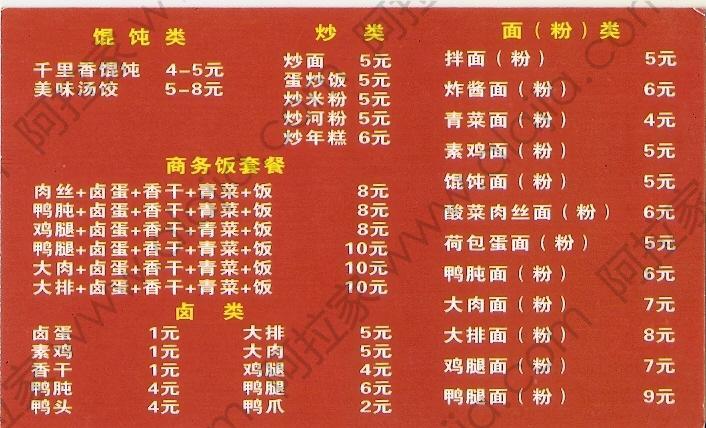 馄饨类
千里香馄饨 4-5元
美味汤饺 5-8元
炒 类
炒面 5元
蛋炒饭 5元
炒米粉 5元
炒河粉 5元
炒年糕 6元
商务饭套餐
肉丝+卤蛋+香干+青菜+饭 8元
鸭肫+卤蛋+香干+青菜+饭 8元
鸡腿+卤蛋+香干+青菜+饭 8元
鸭腿+卤蛋+香干+青菜+饭 10元
大肉+卤蛋+香干+青菜+饭 10元
大排+卤蛋+香干+青菜+饭 10元
卤 类
卤蛋 1元
素鸡 1元
香干 1元
鸭肫 4元
鸭头 4元
大排 5元
大肉 5元
鸡腿 4元
鸭腿 6元
鸭爪 2元
面(粉)类
拌面(粉) 5元
炸酱面(粉) 6元
青菜面(粉) 4元
素鸡面(粉) 5元
馄饨面(粉) 5元
酸菜肉丝面(粉) 6元
荷包蛋面(粉) 5元
鸭肫面(粉) 6元
大肉面(粉) 7元
大排面(粉) 8元
鸡腿面(粉) 7元
鸭腿面(粉) 9元
阿拉家 www.alajia.com